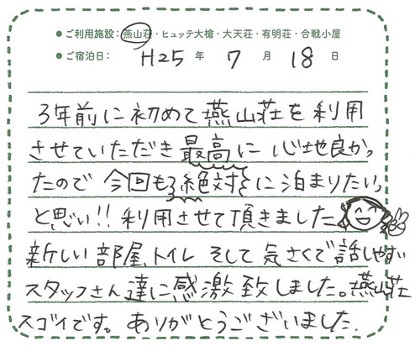 ●ご利用施設:燕山荘・ヒュッテ大槍・大天荘・有明荘・合戦小屋
●ご宿泊日: H25 年 7 月 18 日
3年前に初めて燕山荘を利用
させていただき最高に心地良かっ
たので今回も絶対に泊まりたい
と思い!!利用させて頂きました
新しい部屋、トイレ そして気さくで話しやすい
スタッフさん達に感激致しました。燕山荘
スゴイです。ありがとうございました.